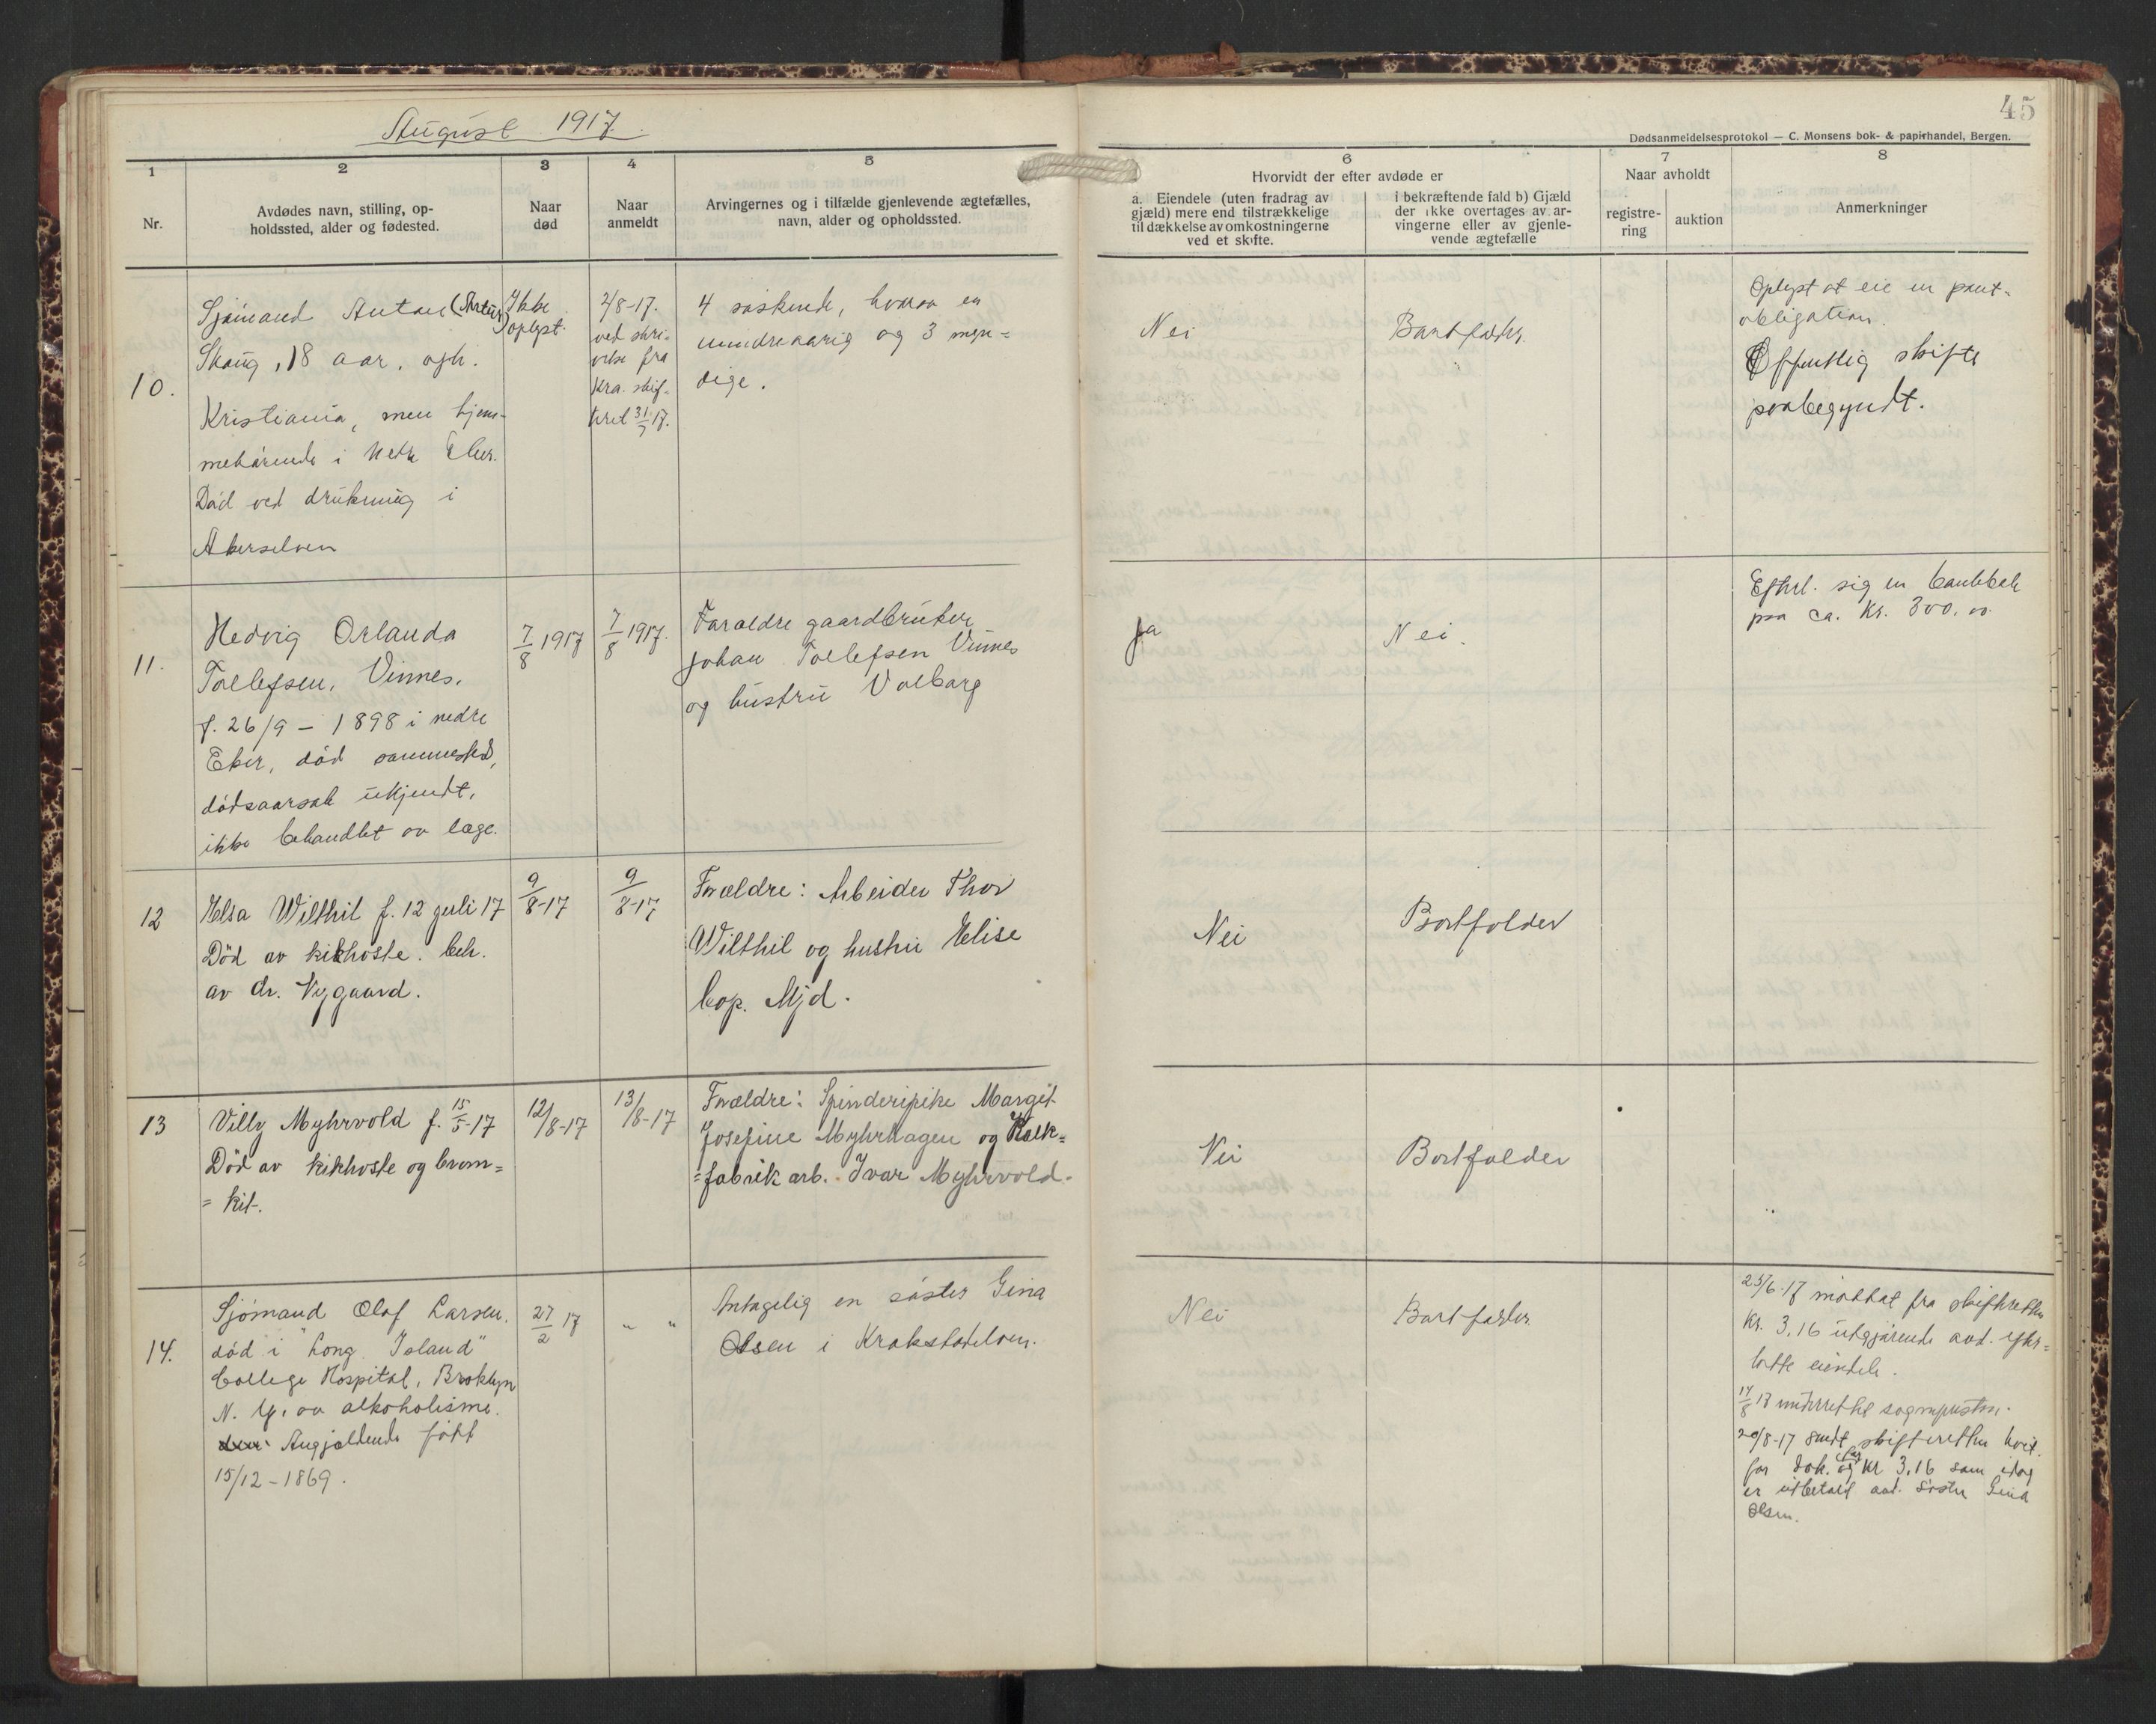 August 1917.
45
Dødsanmeldelsesprotokol — C. Monsens bok- & papirhandel, Bergen.
1
Nr.
2
Avdødes navn, stilling, op-
holdssted, alder og fødested.
3
Naar
død
4
Naar
anmeldt
5
Arvingernes og i tilfælde gjenlevende ægtefælles,
navn, alder og opholdssted.
6
Hvorvidt der efter avdøde er
a. Eiendele (uten fradrag av
gjæld) mere end tilstrækkelige
til dækkelse av omkostningerne
ved et skifte.
i bekræftende fald b) Gjæld
der ikke overtages av ar-
vingerne eller av gjenle-
vende ægtefælle
7
Naar avholdt
registre-
ring
auktion
8
Anmerkninger
10.
Sjømand Anton (Artur)
Skaug, 18 aar, oph.
Kristiania, men hjem-
mehørende i Nedre Eker.
Død ved drukning i
Akerselven
Ikke
oplyst.
2/8-17.
ved skri-
velse fra
Kra. skif-
teret 31/7 17.
4 søskende, hvorav en
mindreaarig og 3 myn=
dige.
Nei
Bortfalder.
Oplyst at eie en pant-
obligation.
Offentlig skifte
paabegyndt.
11.
Hedvig Orlanda
Tollefsen, Vinnes.
f. 26/9 - 1898 i nedre
Eker, død sammested,
dødsaarsak ukjendt,
ikke behandlet av læge.
7/8 1917
7/8 1917.
Forældre gaardbruker
Johan Tollefsen Vinnes
og hustru Valborg
Ja
Nei.
Efterl. sig en bankbok
paa ca. Kr. 300.00.
12
Elsa Wilthil f. 12 juli 17
Död av kikhoste. beh.
av dr. Nygaard.
9/8-17
9/8-17
Forældre: Arbeider Thor
Wilthil og hustru Elise
Cop. Mjd.
Nei
Bortfalder
13
Villy Myhrvold f. 15/5-17
Död av kikhoste og bron=
= kit.
12/8-17
13/8-17
Forældre: Spinderipike Margit
Josefine Myhrhagen og Kalk=
=fabrik arb. Ivar Myhrvold.
Nei
Bortfalder
14.
Sjømand Olaf Larsen.
død i "Long Island"
College Hospital, Broklyn
N. Y. av alkoholisme.
Angjældende født
15/12 - 1869.
27/2 17
" "
Antagelig en søster Gina
Olsen i Krokstadelven.
Nei
Bortfalder
25/6-17 mottat fra skifteretten
Kr. 3,16 utgjørende avd. efter=
latte eiendele.
14/8 17 underrettet sognepresten.
20/8-17 sendt skifteretten kvit.
for dok. og for kr 3,16 som idag
er utbetalt avd. søster Gina
Olsen.